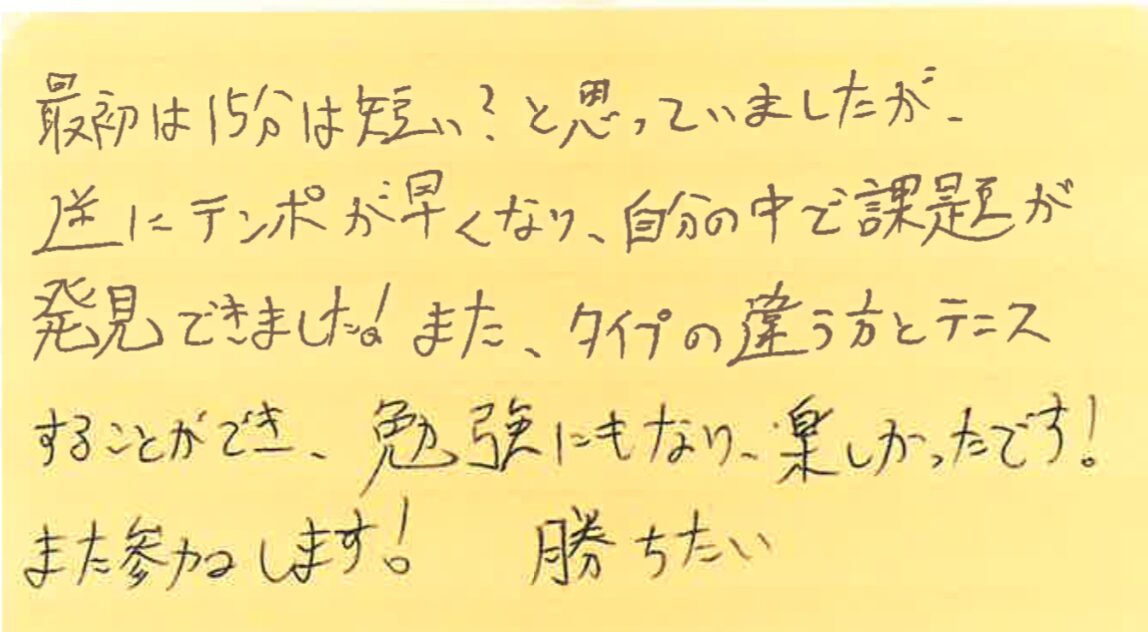 最初は15分は短い?と思っていましたが、
逆にテンポが早くなり、自分の中で課題が
発見できました!また、タイプの違う方とテニス
することができ、勉強にもなり、楽しかったです!
また参加します! 勝ちたい